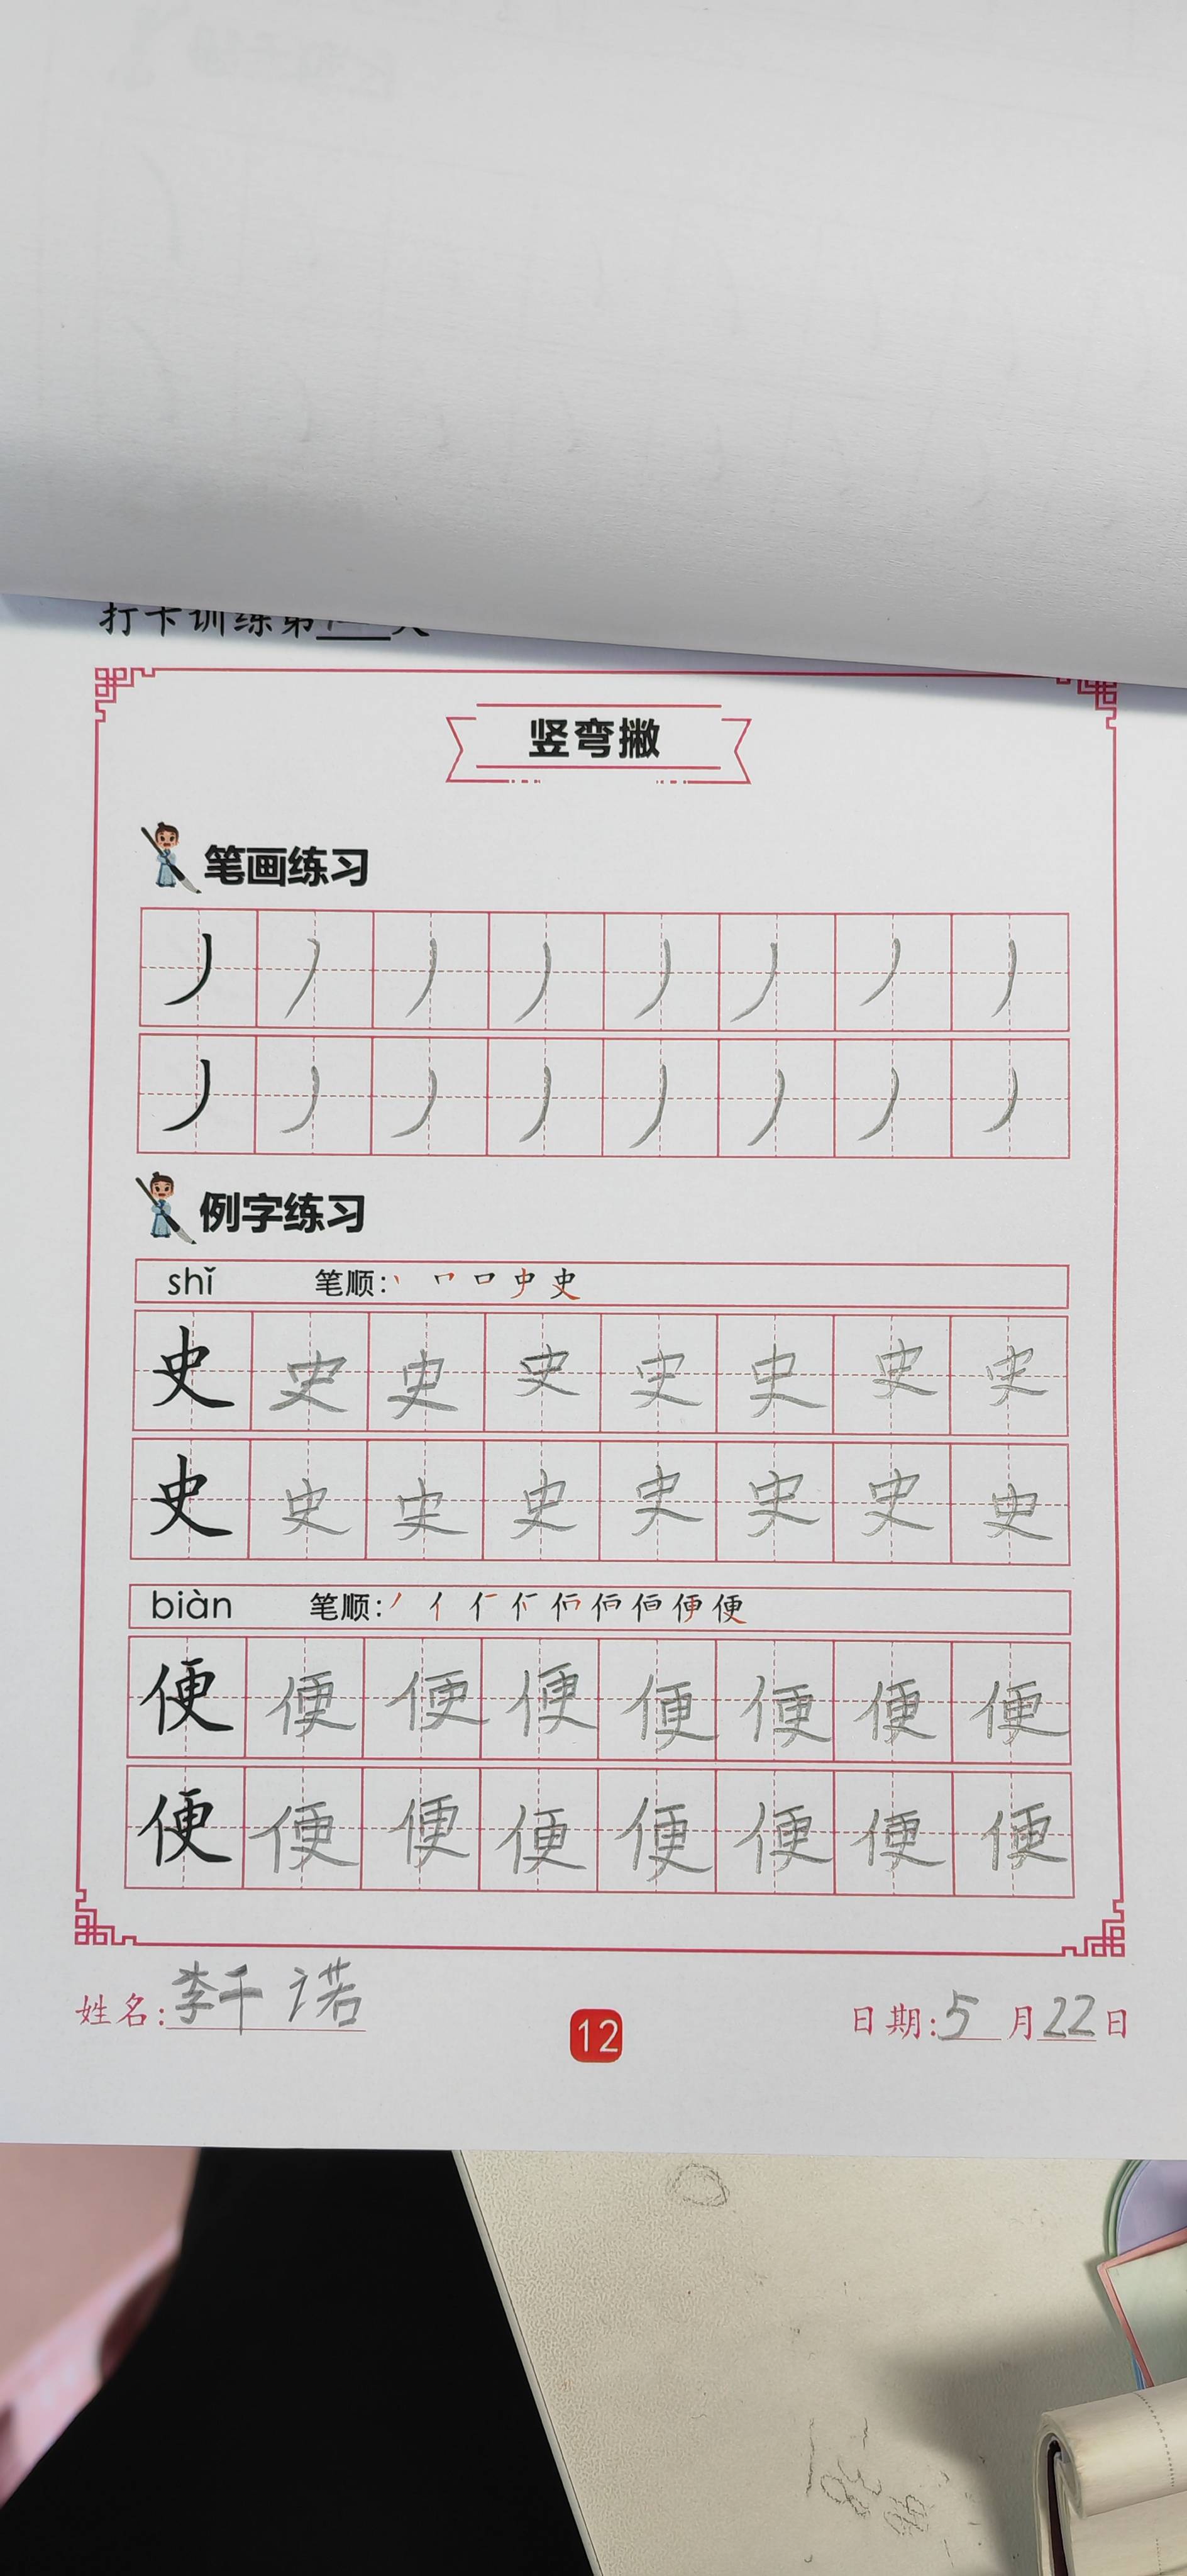 打卡训练第 天
竖弯撇
笔画练习
丿 丿 丿 丿 丿 丿 丿 丿
丿 丿 丿 丿 丿 丿 丿 丿
例字练习
shǐ 笔顺: 丶 𠃍 口 史 史
史 史 史 史 史 史 史 史
史 史 史 史 史 史 史 史
biàn 笔顺: 丿 亻 便
便 便 便 便 便 便 便 便
便 便 便 便 便 便 便 便
姓名: 李千诺 12 日期: 5 月 22 日